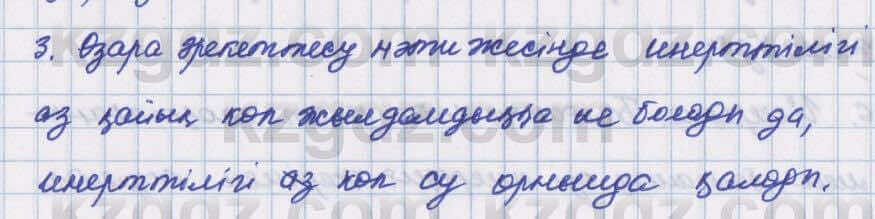 3. Өзара әрекеттесу нәтижесінде инерттілігі
аз қайық көп жылдамдыққа ие болады да,
инерттілігі аз көп су орнында қалады.